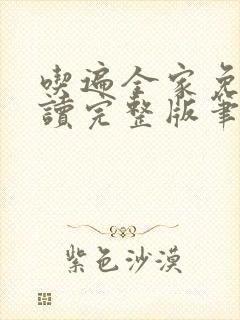 喫遍全家免
讀完整版筆
紫色沙漠